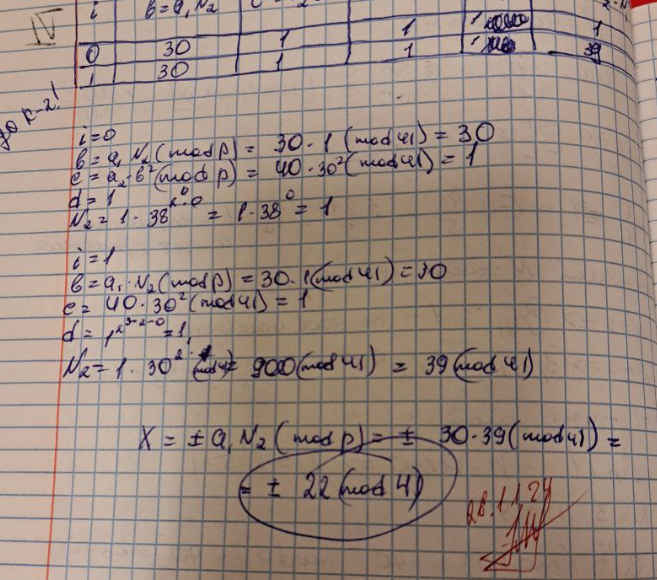 i b = a₁N₂
0 30 1 1 1
1 30 1 1 39
до k-2!
i=0
b = a₁N₂(mod p) = 30·1 (mod 41) = 30
c = a₂·b²(mod p) = 40·30²(mod 41) = 1
d = 1
N₂ = 1·38⁰ = 1·38⁰ = 1
i=1
b = a₁·N₂(mod p) = 30·1(mod 41) = 30
c = 40·30²(mod 41) = 1
d = 1^2^3-2-0 = 1
N₂ = 1·30² = 900(mod 41) = 39(mod 41)
X = ±a₁N₂(mod p) = ± 30·39(mod 41) =
= ± 22(mod 41)
28.11.24